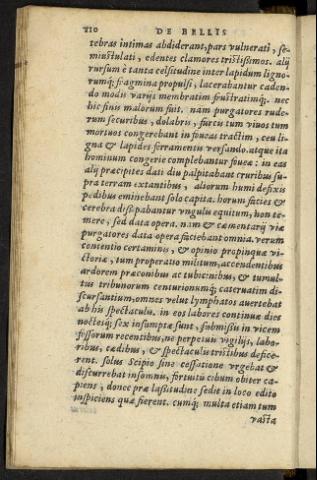 110 DE BELLIS
tebras intimas abdiderant, pars vulnerati, se-
miustulati, edentes clamores tristissimos. alij
rursum è tanta celsitudine inter lapidum ligno-
rumq; fragmina propulsi, lacerabantur caden-
do modis varijs membratim feustratimq;. nec
hic finis malorum fuit. nam purgatores rude-
rum securibus, dolabris, furcis tum viuos tum
mortuos congerebant in foueas tractim, ceu li-
gna & lapides ferramentis versando. atque ita
hominum congerie complebantur foueæ: in eas
alij præcipites dati diu palpitabant cruribus su-
pra terram extantibus, aliorum humi defixis
pedibus eminebant solo capita. horum facies &
cerebra dissipabantur vngulis equitum, non te-
mere, sed data opera. nam & cæmentarij viæ
purgatores data opera faciebant omnia. verum
contentio certaminis, & opinio propinquæ vi-
ctoriæ, tum properatio militum, accendentibus
ardorem præconibus ac tubicinibus, & tumul-
tus tribunorum centurionumq; cateruatim di-
scursantium, omnes velut lymphatos auertebat
ab his spectaculis. in eos labores continuæ dies
noctesq; sex insumptæ sunt, submissis in vicem
fessorum recentibus, ne perpetuis vigilijs, labo-
ribus, cædibus, & spectaculis tristibus defice-
rent. solus Scipio sine cessatione vrgebat &
discurrebat insomnis, fortuitò cibum obiter ca-
piens, donec præ lassitudine sedit in loco edito
inspiciens quæ fierent. cumq; multa etiam tum
vasta